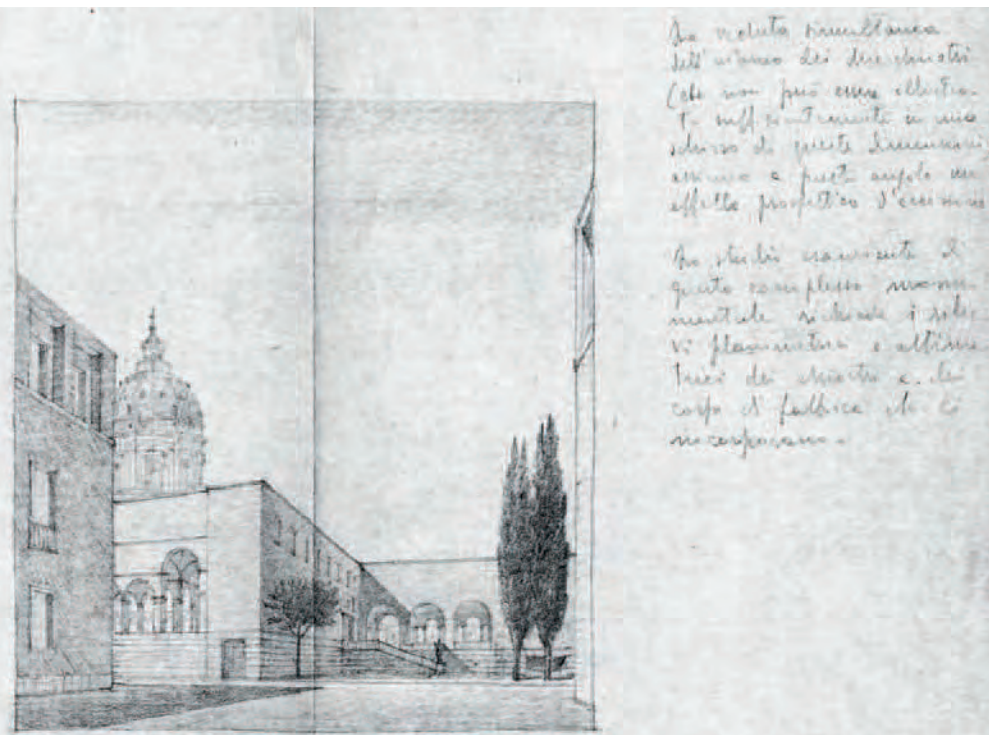 La veduta simultanea
dell'interno dei due chiostri
(che non può essere illustra-
ta sufficientemente in uno
schizzo di queste dimensioni)
assume a quest'angolo un
effetto prospettico
Lo studio esauriente di
questo complesso monu-
mentale richiede i rilie-
vi planimetrici e altime-
trici dei chiostri e dei
corpi di fabbrica che li
incorporano.